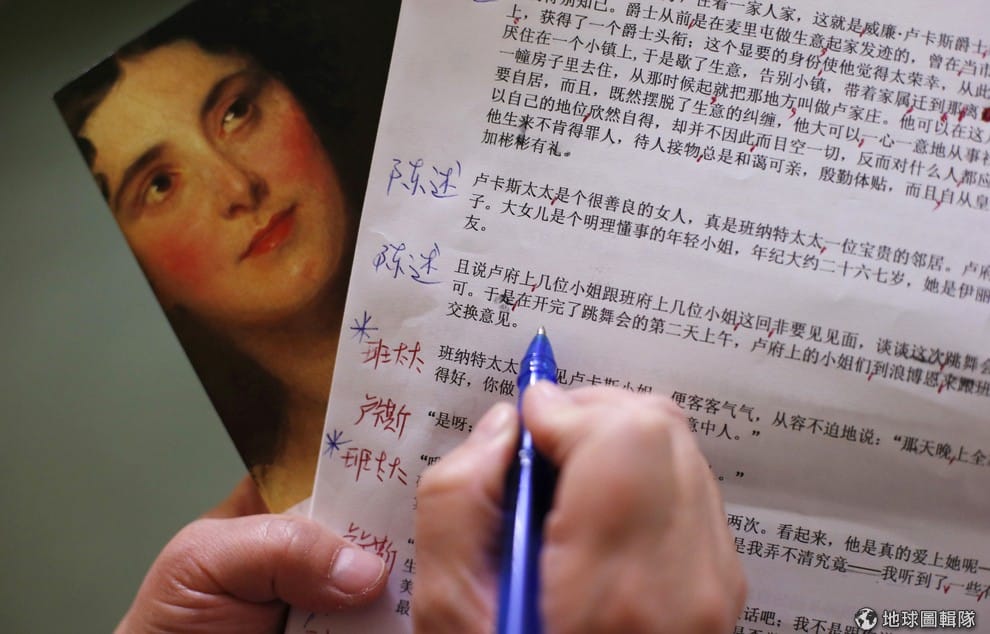 着一家人家，这就是威廉·卢卡斯爵士
爵士从前是在麦里屯做生意起家发迹的，曾在当市
上，获得了一个爵士头衔；这个显要的身份使他觉得太荣幸，从此
厌住在一个小镇上，于是歇了生意，告别小镇，带着家属迁到那离
一幢房子里去住，从那时候起就把那地方叫做卢家庄。他可以在这
要自居，而且，既然摆脱了生意的纠缠，他大可以一心一意地从事社
以自己的地位欣然自得，却并不因此而目空一切，反而对什么人都应
他生来不肯得罪人，待人接物总是和蔼可亲，殷勤体贴，而且自从皇
加彬彬有礼。
陈述
卢卡斯太太是个很善良的女人，真是班纳特太太一位宝贵的邻居。卢府
子。大女儿是个明理懂事的年轻小姐，年纪大约二十六七岁，她是伊丽
友。
陈述
且说卢府上几位小姐跟班府上几位小姐这回非要见见面，谈谈这次跳舞会
可。于是在开完了跳舞会的第二天上午，卢府上的小姐们到浪博恩来跟班
交换意见。
班太太
班纳特太太 见卢卡斯小姐，便客客气气，从容不迫地说：“那天晚上全
得好，你做 意中人。”
卢卡斯
“是呀；
班太太
。”
两次。看起来，他是真的爱上她呢—
是我弄不清究竟——我听到了一些
生
美 话吧；我不是跟
最
地球圖輯隊